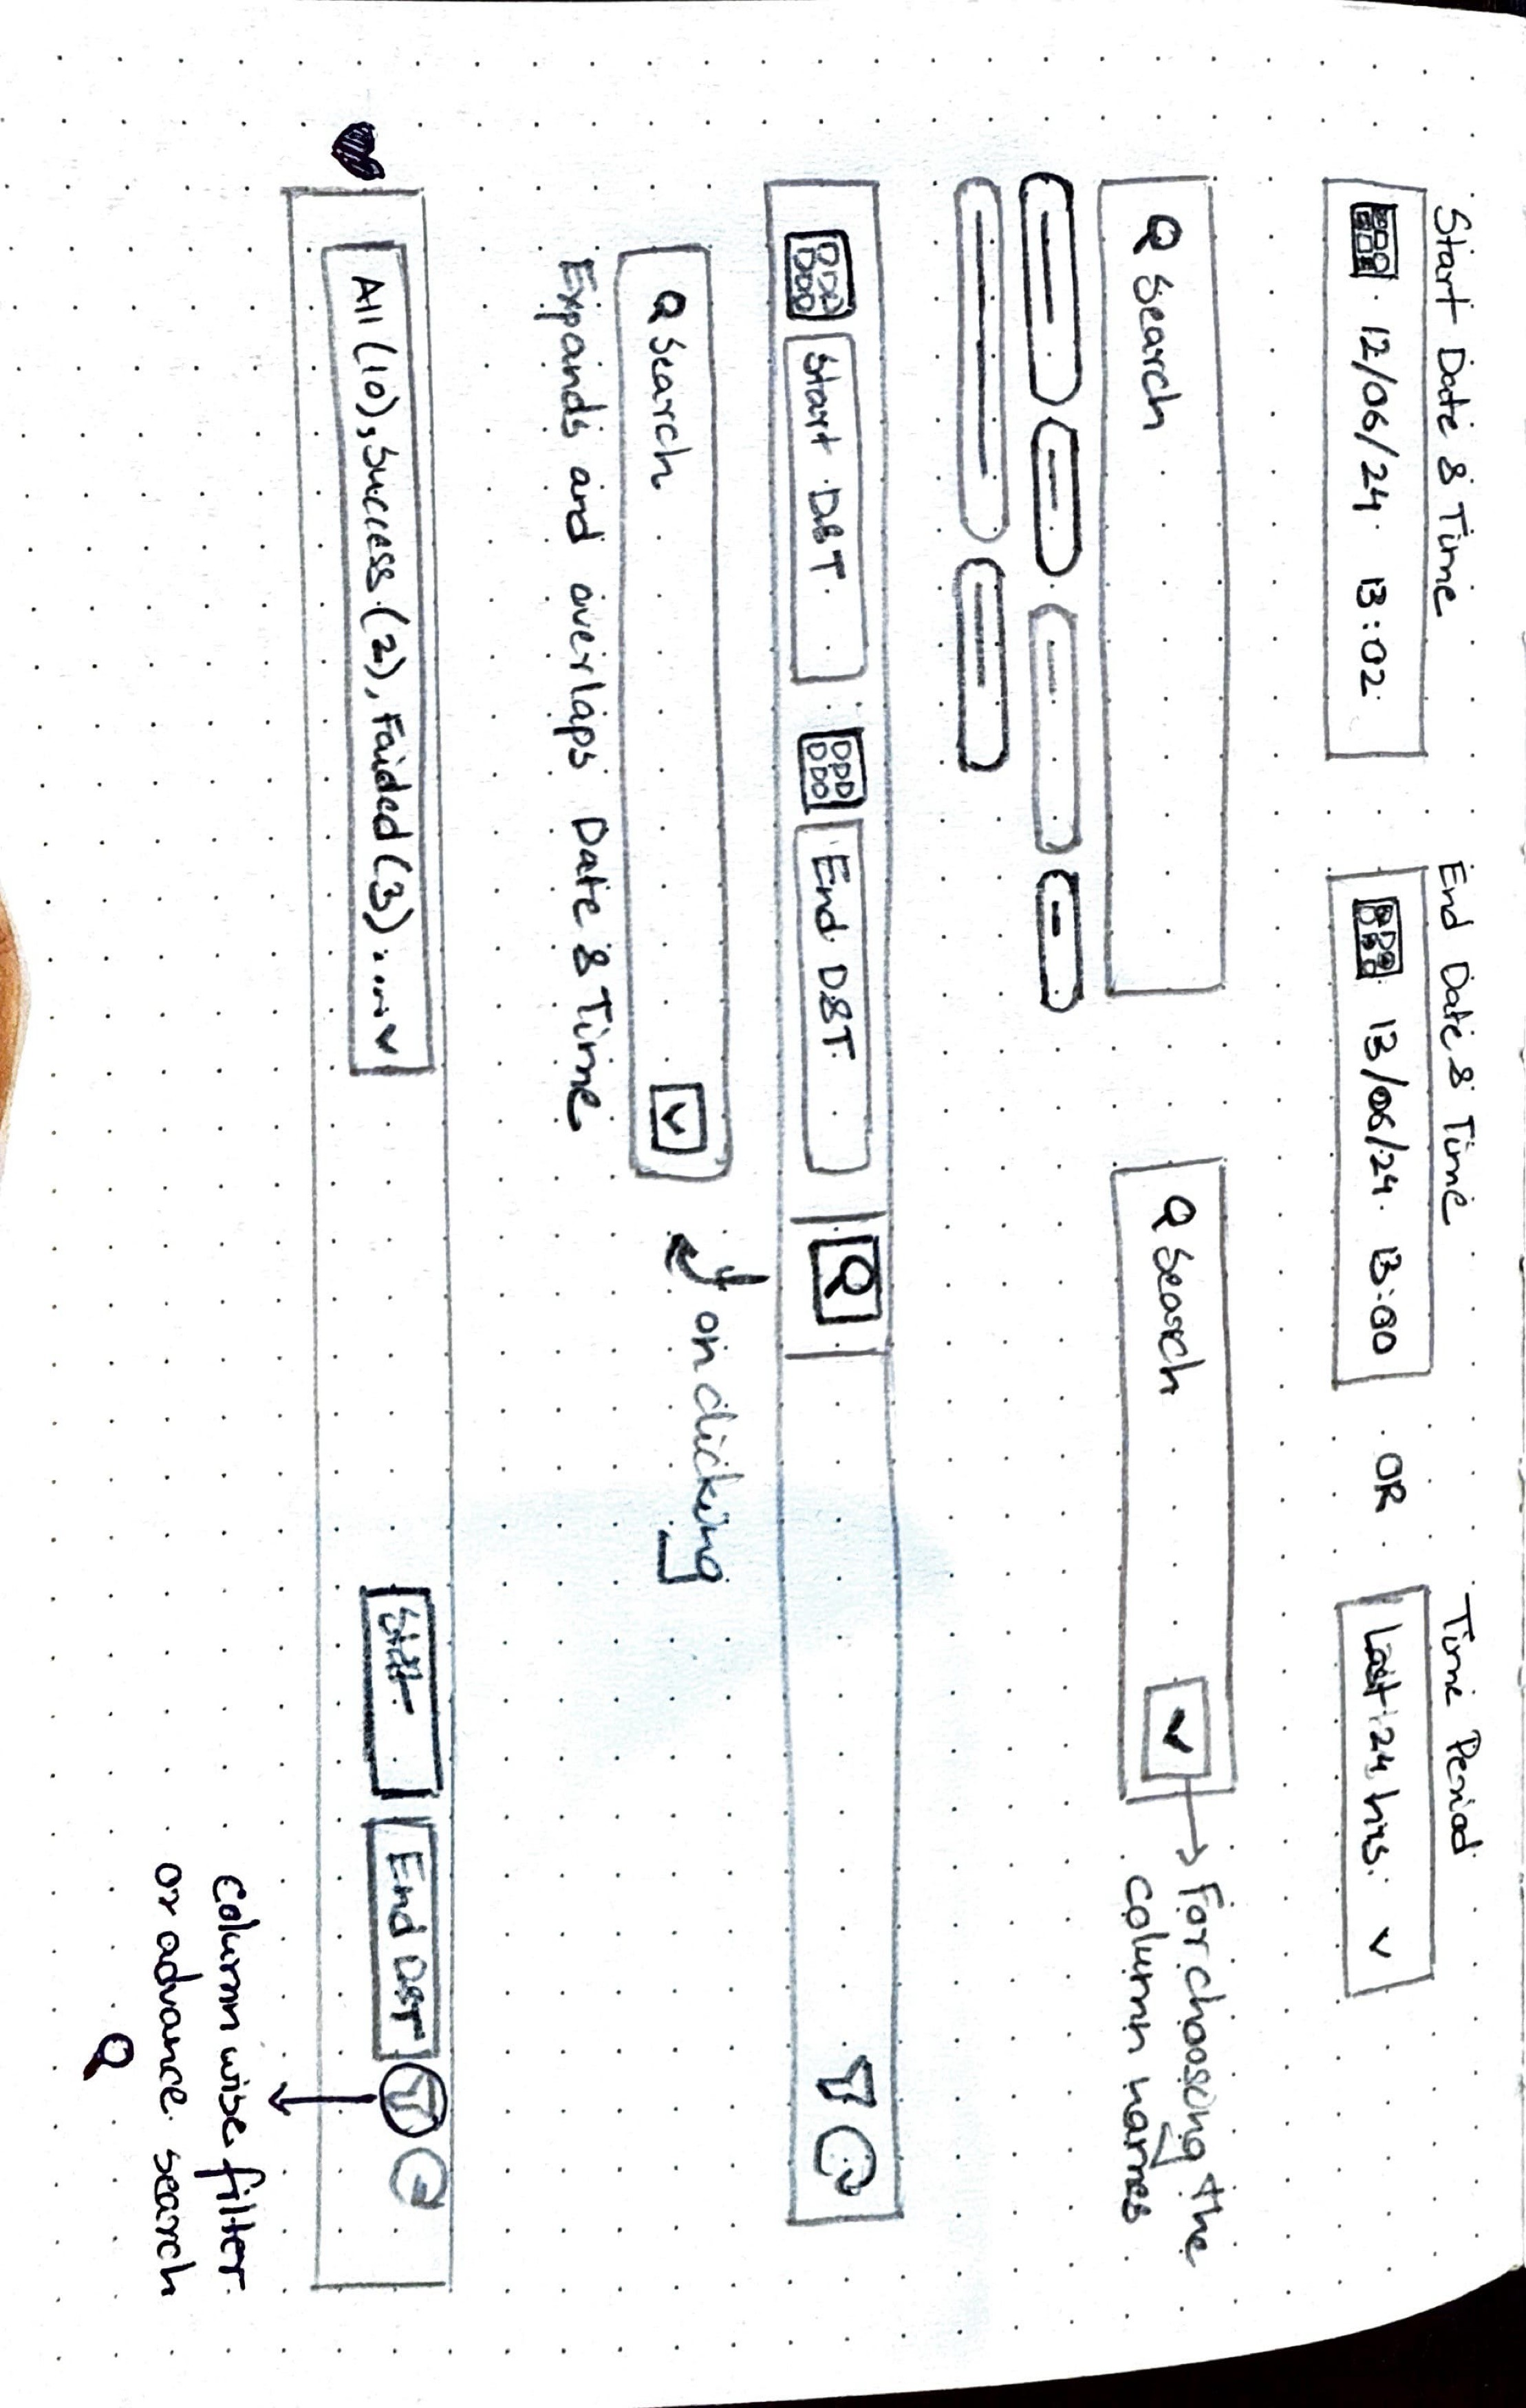 Start Date & Time End Date & Time Time Period
12/06/24 13:02 13/06/24 13:00 OR Last 24 hrs.
Search Search For choosing the
column names
Start D&T End D&T
Search on clicking
Expands and overlaps Date & Time
All (10), Success (2), Faided (3).... Start End D&T
Column wise filter
or advance search